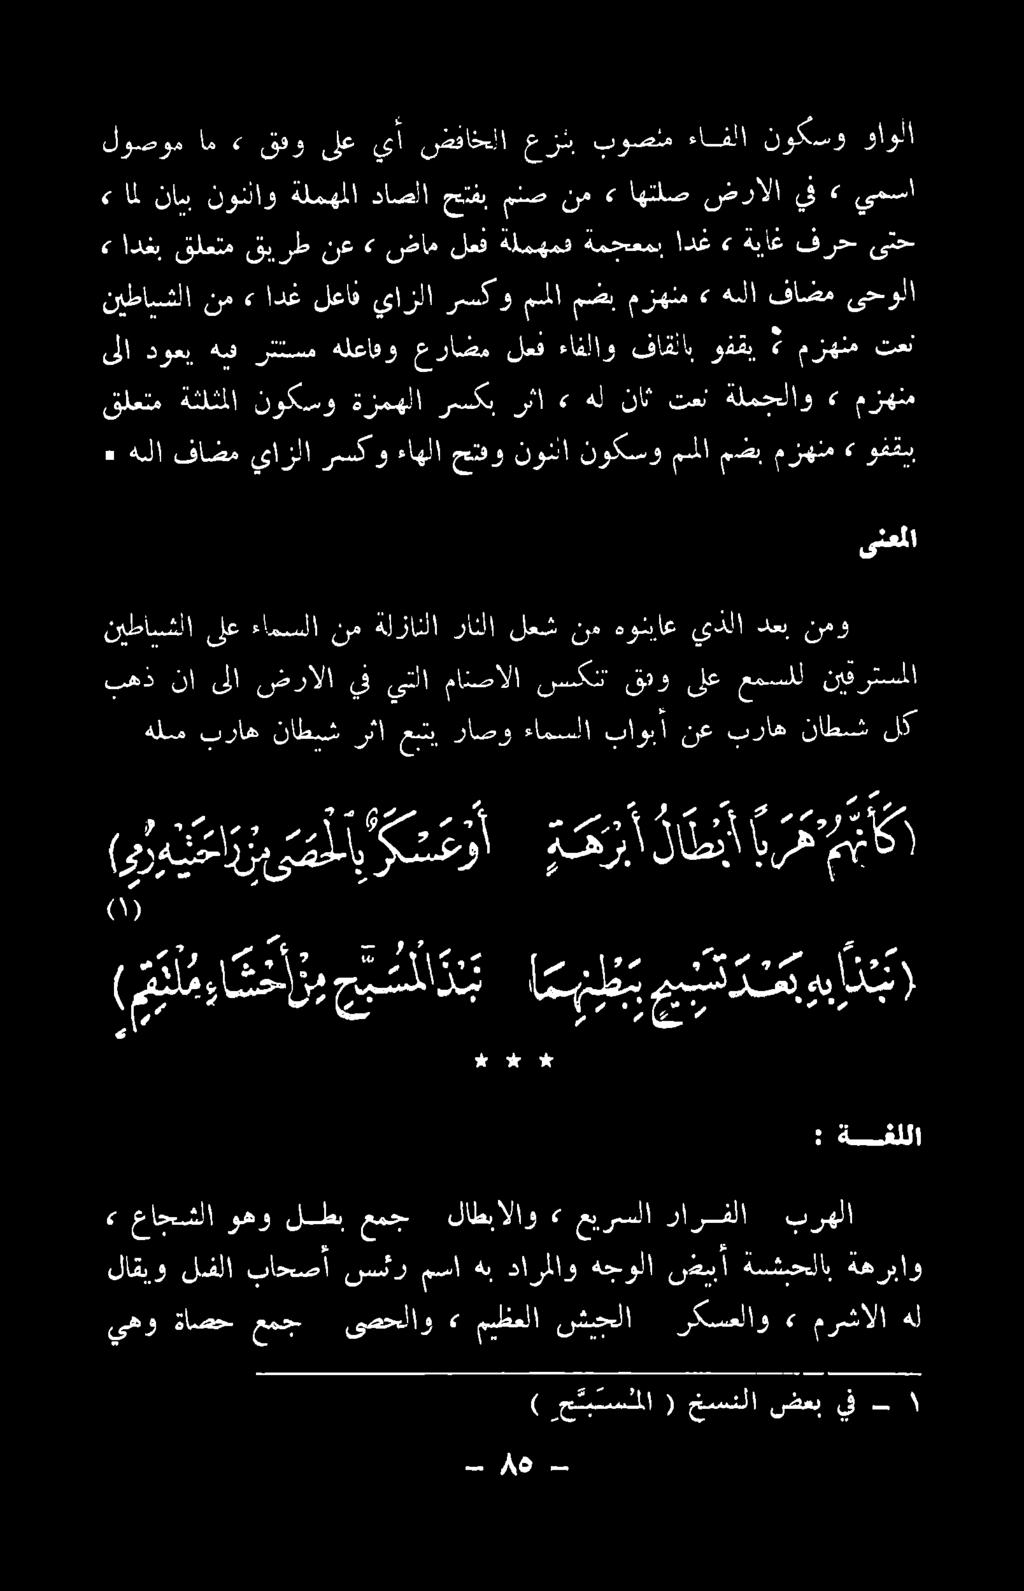 الواو وسكون الفاء منصوب بنزع الخافض أي على وفق ، ما موصول
اسمي ، في الارض صلتها ، من صنم بفتح الصاد المهملة والنون بيان لما ،
حتى حرف غاية ، غدا بمعجمة فمهملة فعل ماض ، عن طريق متعلق بغدا ،
الوحى مضاف اليه ، منهزم بضم الميم وكسر الزاي فاعل غدا ، من الشياطين
نعت منهزم ، يقفو بالقاف والفاء فعل مضارع وفاعله مستتر فيه يعود الى
منهزم ، والجملة نعت ثان له ، اثر بكسر الهمزة وسكون المثلثة متعلق
بيقفو ، منهزم بضم الميم وسكون النون وفتح الهاء وكسر الزاي مضاف اليه .
المعنى
ومن بعد الذي عاينوه من شعل النار النازلة من السماء على الشياطين
المسترقين للسمع على وفق تنكس الاصنام التي في الارض الى ان ذهب
كل شيطان هارب عن أبواب السماء وصار يتبع اثر شيطان هارب مثله
(كَأَنَّهُمْ هَرَبًا أَبْطَالُ أَبْرَهَةٍ أَوْ عَسْكَرٌ بِالْحَصَى مِنْ رَاحَتَيْهِ رُمِي)
(١)
(نَبْذًا بِهِ بَعْدَ تَسْبِيحٍ بِبَطْنِهِمَا نَبْذَ الْمُسَبِّحِ مِنْ أَحْشَاءِ مُلْتَقِمِ)
★ ★ ★
اللغـــة :
الهرب الفرار السريع ، والابطال جمع بطل وهو الشجاع ،
وابرهة بالحبشية أبيض الوجه والمراد به اسم رئيس أصحاب الفيل ويقال
له الاشرم ، والعسكر الجيش العظيم ، والحصى جمع حصاة وهي
١ – في بعض النسخ ( المُسَبَّحِ )
– ٨٥ –